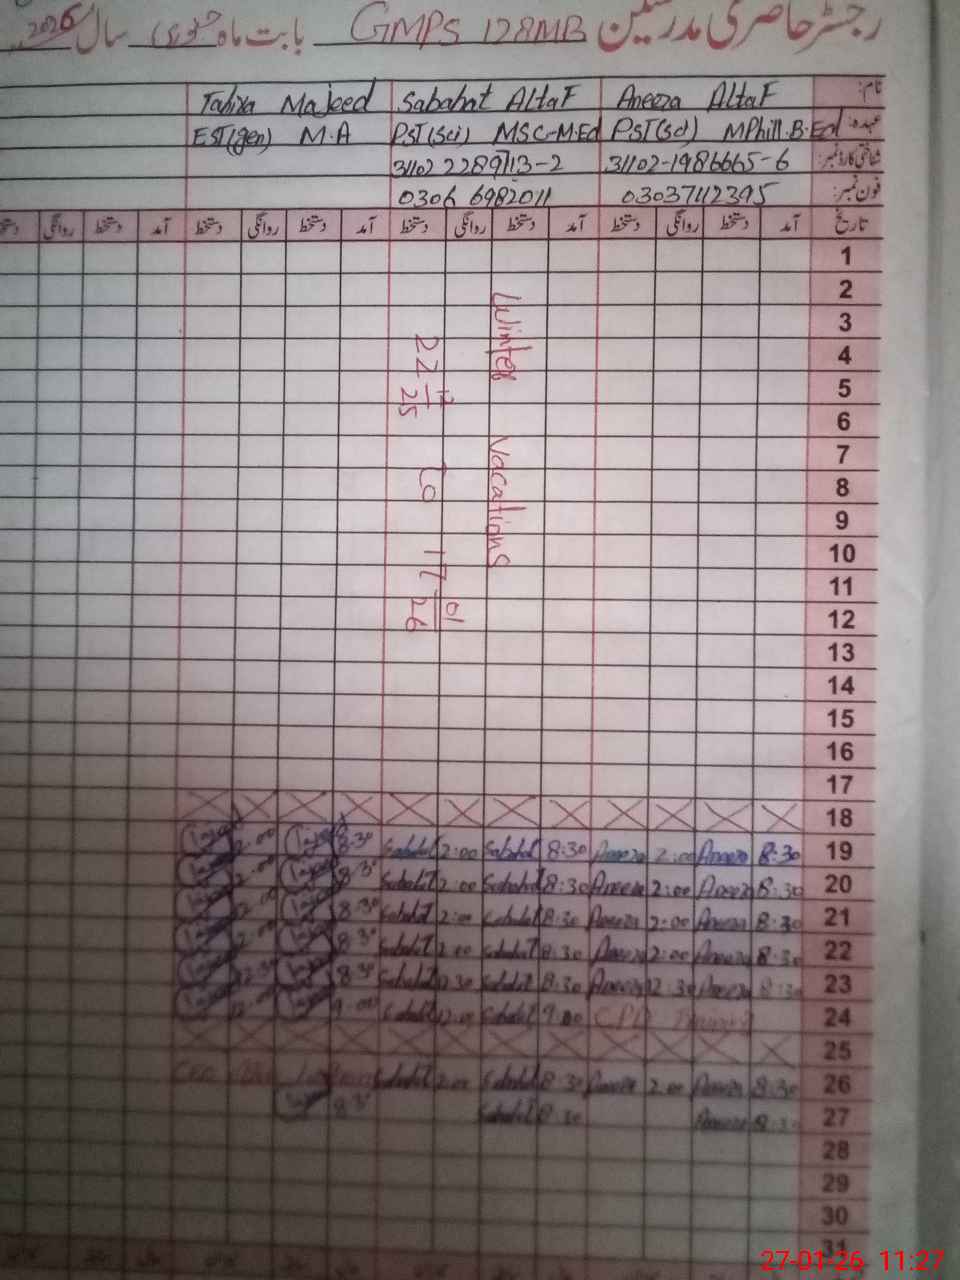 رجسٹر حاضری مدرسین GMPS 128MB بابت ماہ جنوری سال 2026
نام: Aneeza Altaf Sabahat Altaf Tahira Majeed
عہدہ: PST(Sci) MPhill.B.Ed PST(Sci) MSC-M.Ed EST(gen) M.A
شناختی کارڈ نمبر: 31102-1986665-6 31102 2289713-2
فون نمبر: 03037112395 0306 6982011
تاریخ آمد دستخط روانگی دستخط آمد دستخط روانگی دستخط آمد دستخط روانگی دستخط آمد دستخط روانگی دستخط
1
2
3
4
5
6
7
8
9
10
11
12
13
14
15
16
17
Winter Vacations
22 12/25 to 17 01/26
18
19 8:30 Aneeza 2:00 Aneeza 8:30 Sabahat 2:00 Sabahat 8:30 2:00
20 8:30 Aneeza 2:00 Aneeza 8:30 Sabahat 2:00 Sabahat 8:30 2:00
21 8:30 Aneeza 2:00 Aneeza 8:30 Sabahat 2:00 Sabahat 8:30 2:00
22 8:30 Aneeza 2:00 Aneeza 8:30 Sabahat 2:00 Sabahat 8:30 2:00
23 8:30 Aneeza 12:30 Aneeza 8:30 Sabahat 12:30 Sabahat 8:30 12:30
24 CPD Training 9:00 Sabahat Sabahat 9:00
25
26 8:30 Aneeza 2:00 Aneeza 8:30 Sabahat 2:00 Sabahat
27 8:30 Aneeza 8:30 Sabahat 8:30
28
29
30
31
27-01-26 11:27